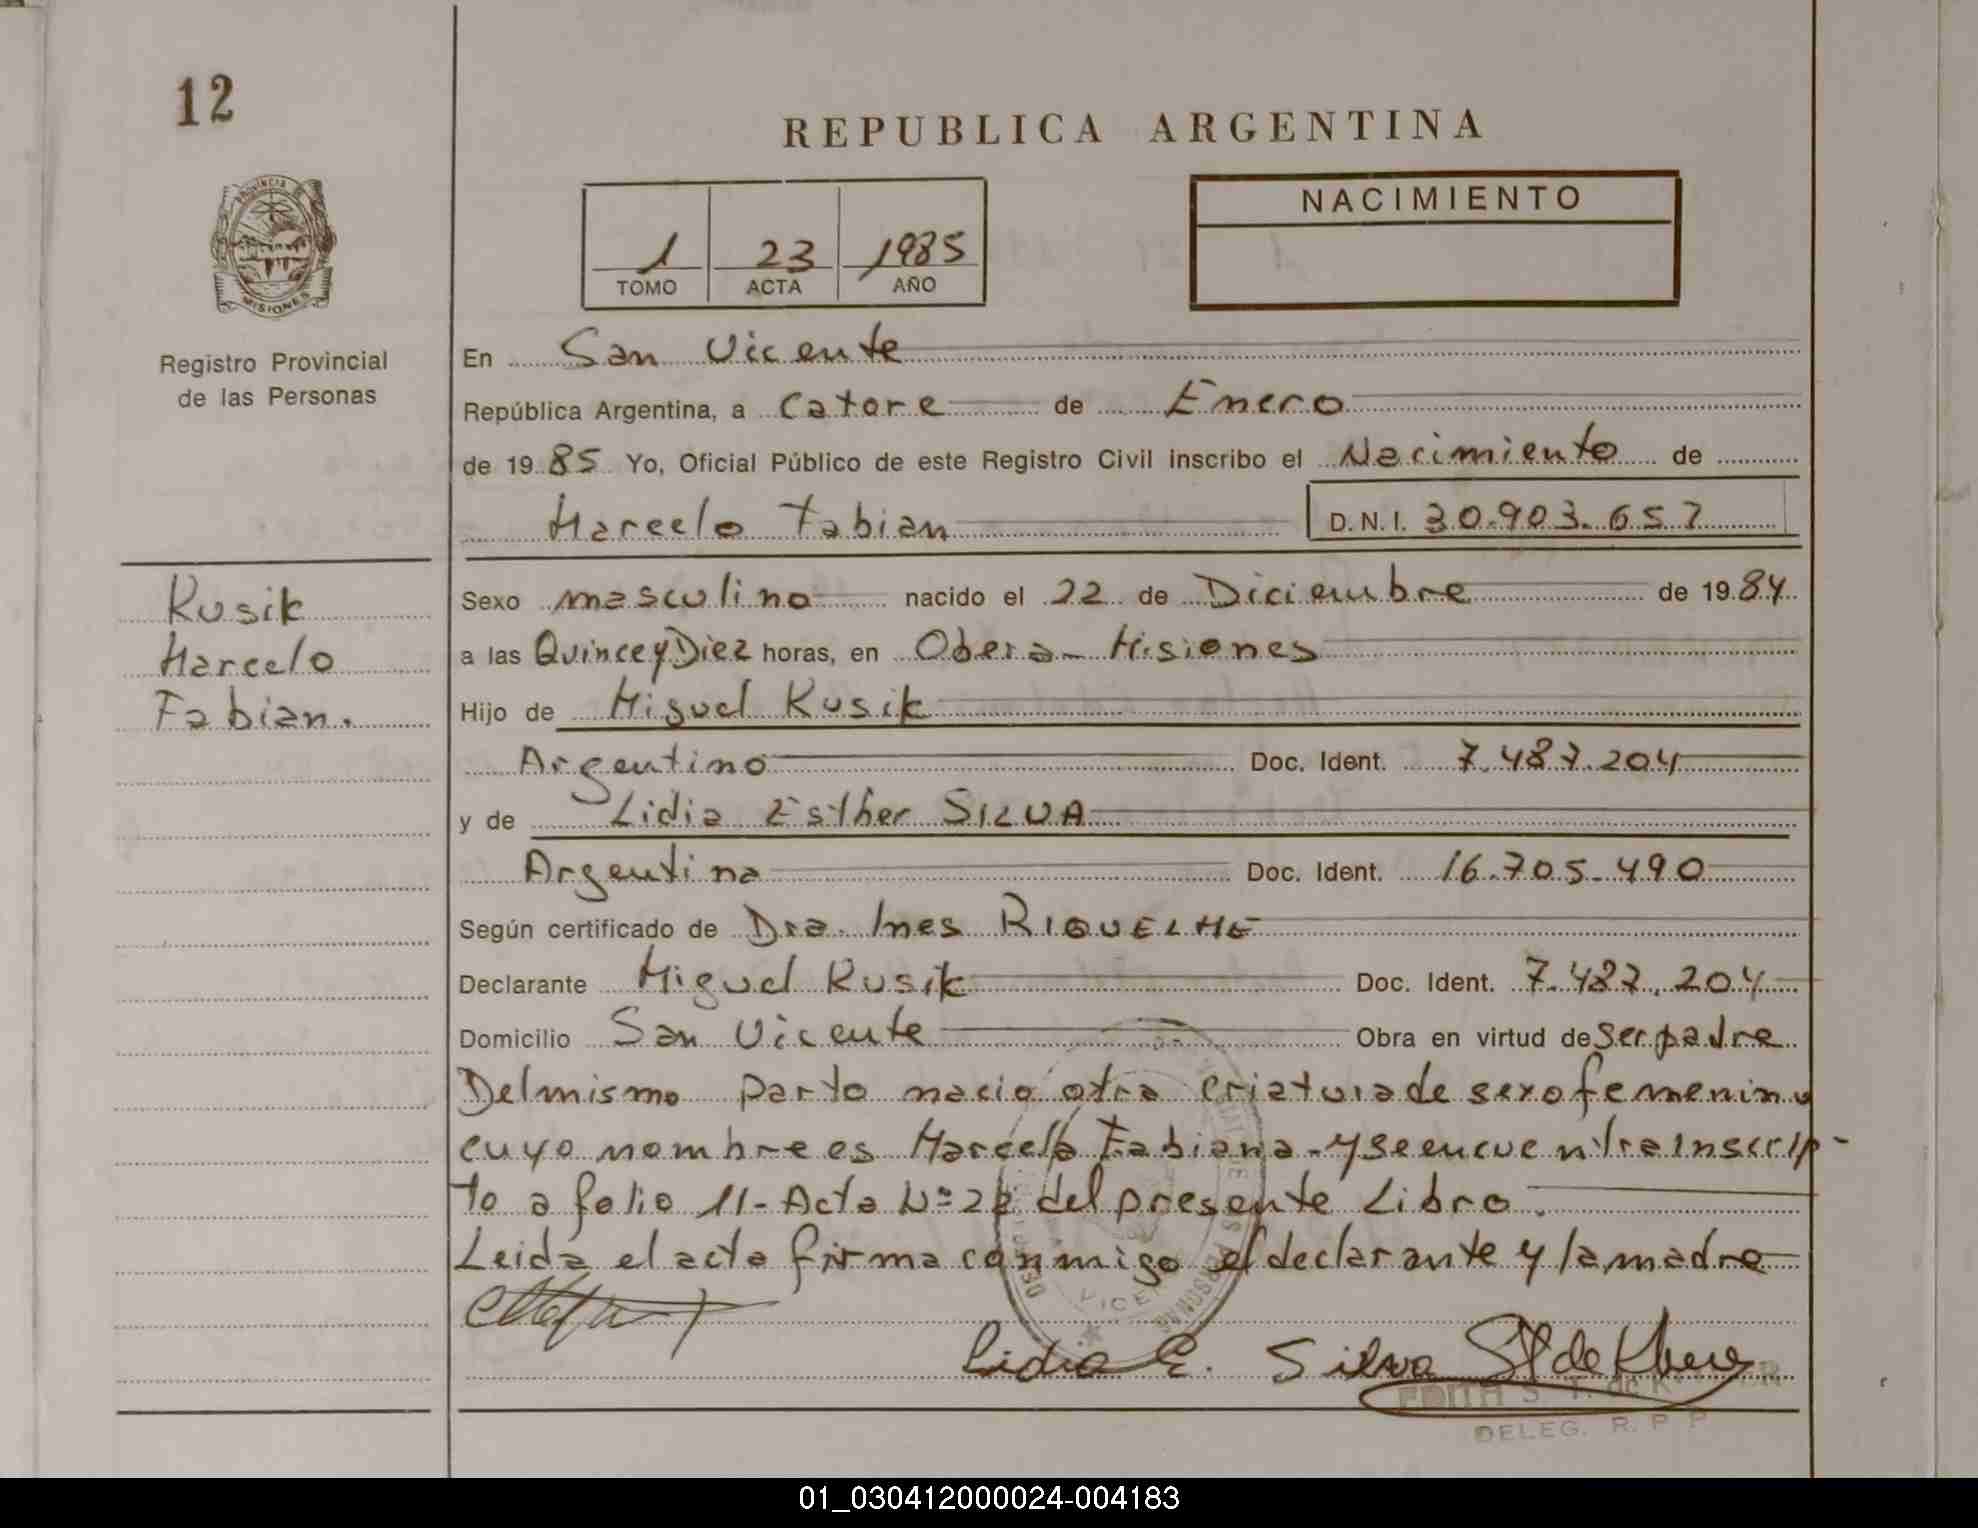 12
REPUBLICA ARGENTINA
NACIMIENTO
1 23 1985
TOMO ACTA AÑO
PROVINCIA DE
MISIONES
Registro Provincial
de las Personas
En San Vicente
República Argentina, a Catorce de Enero
de 19 85 Yo, Oficial Público de este Registro Civil inscribo el Nacimiento de
Marcelo Fabian D.N.I. 30.903.657
Kusik
Marcelo
Fabian.
Sexo masculino nacido el 22 de Diciembre de 19 84
a las Quince y Diez horas, en Obera - Misiones
Hijo de Miguel Kusik
Argentino Doc. Ident. 7.487.204
y de Lidia Esther SILVA
Argentina Doc. Ident. 16.705.490
Según certificado de Dra. Ines RIQUELME
Declarante Miguel Kusik Doc. Ident. 7.487.204
Domicilio San Vicente Obra en virtud de ser padre
Del mismo parto nacio otra criatura de sexo femenino
cuyo nombre es Marcela Fabiana - y se encuentra Inscrip-
to a folio 11 - Acta Nº 22 del presente Libro.
Leida el acta firma conmigo el declarante y la madre
Lidia E. Silva
EDITH S. T. de
DELEG. R. P. P.
01_030412000024-004183